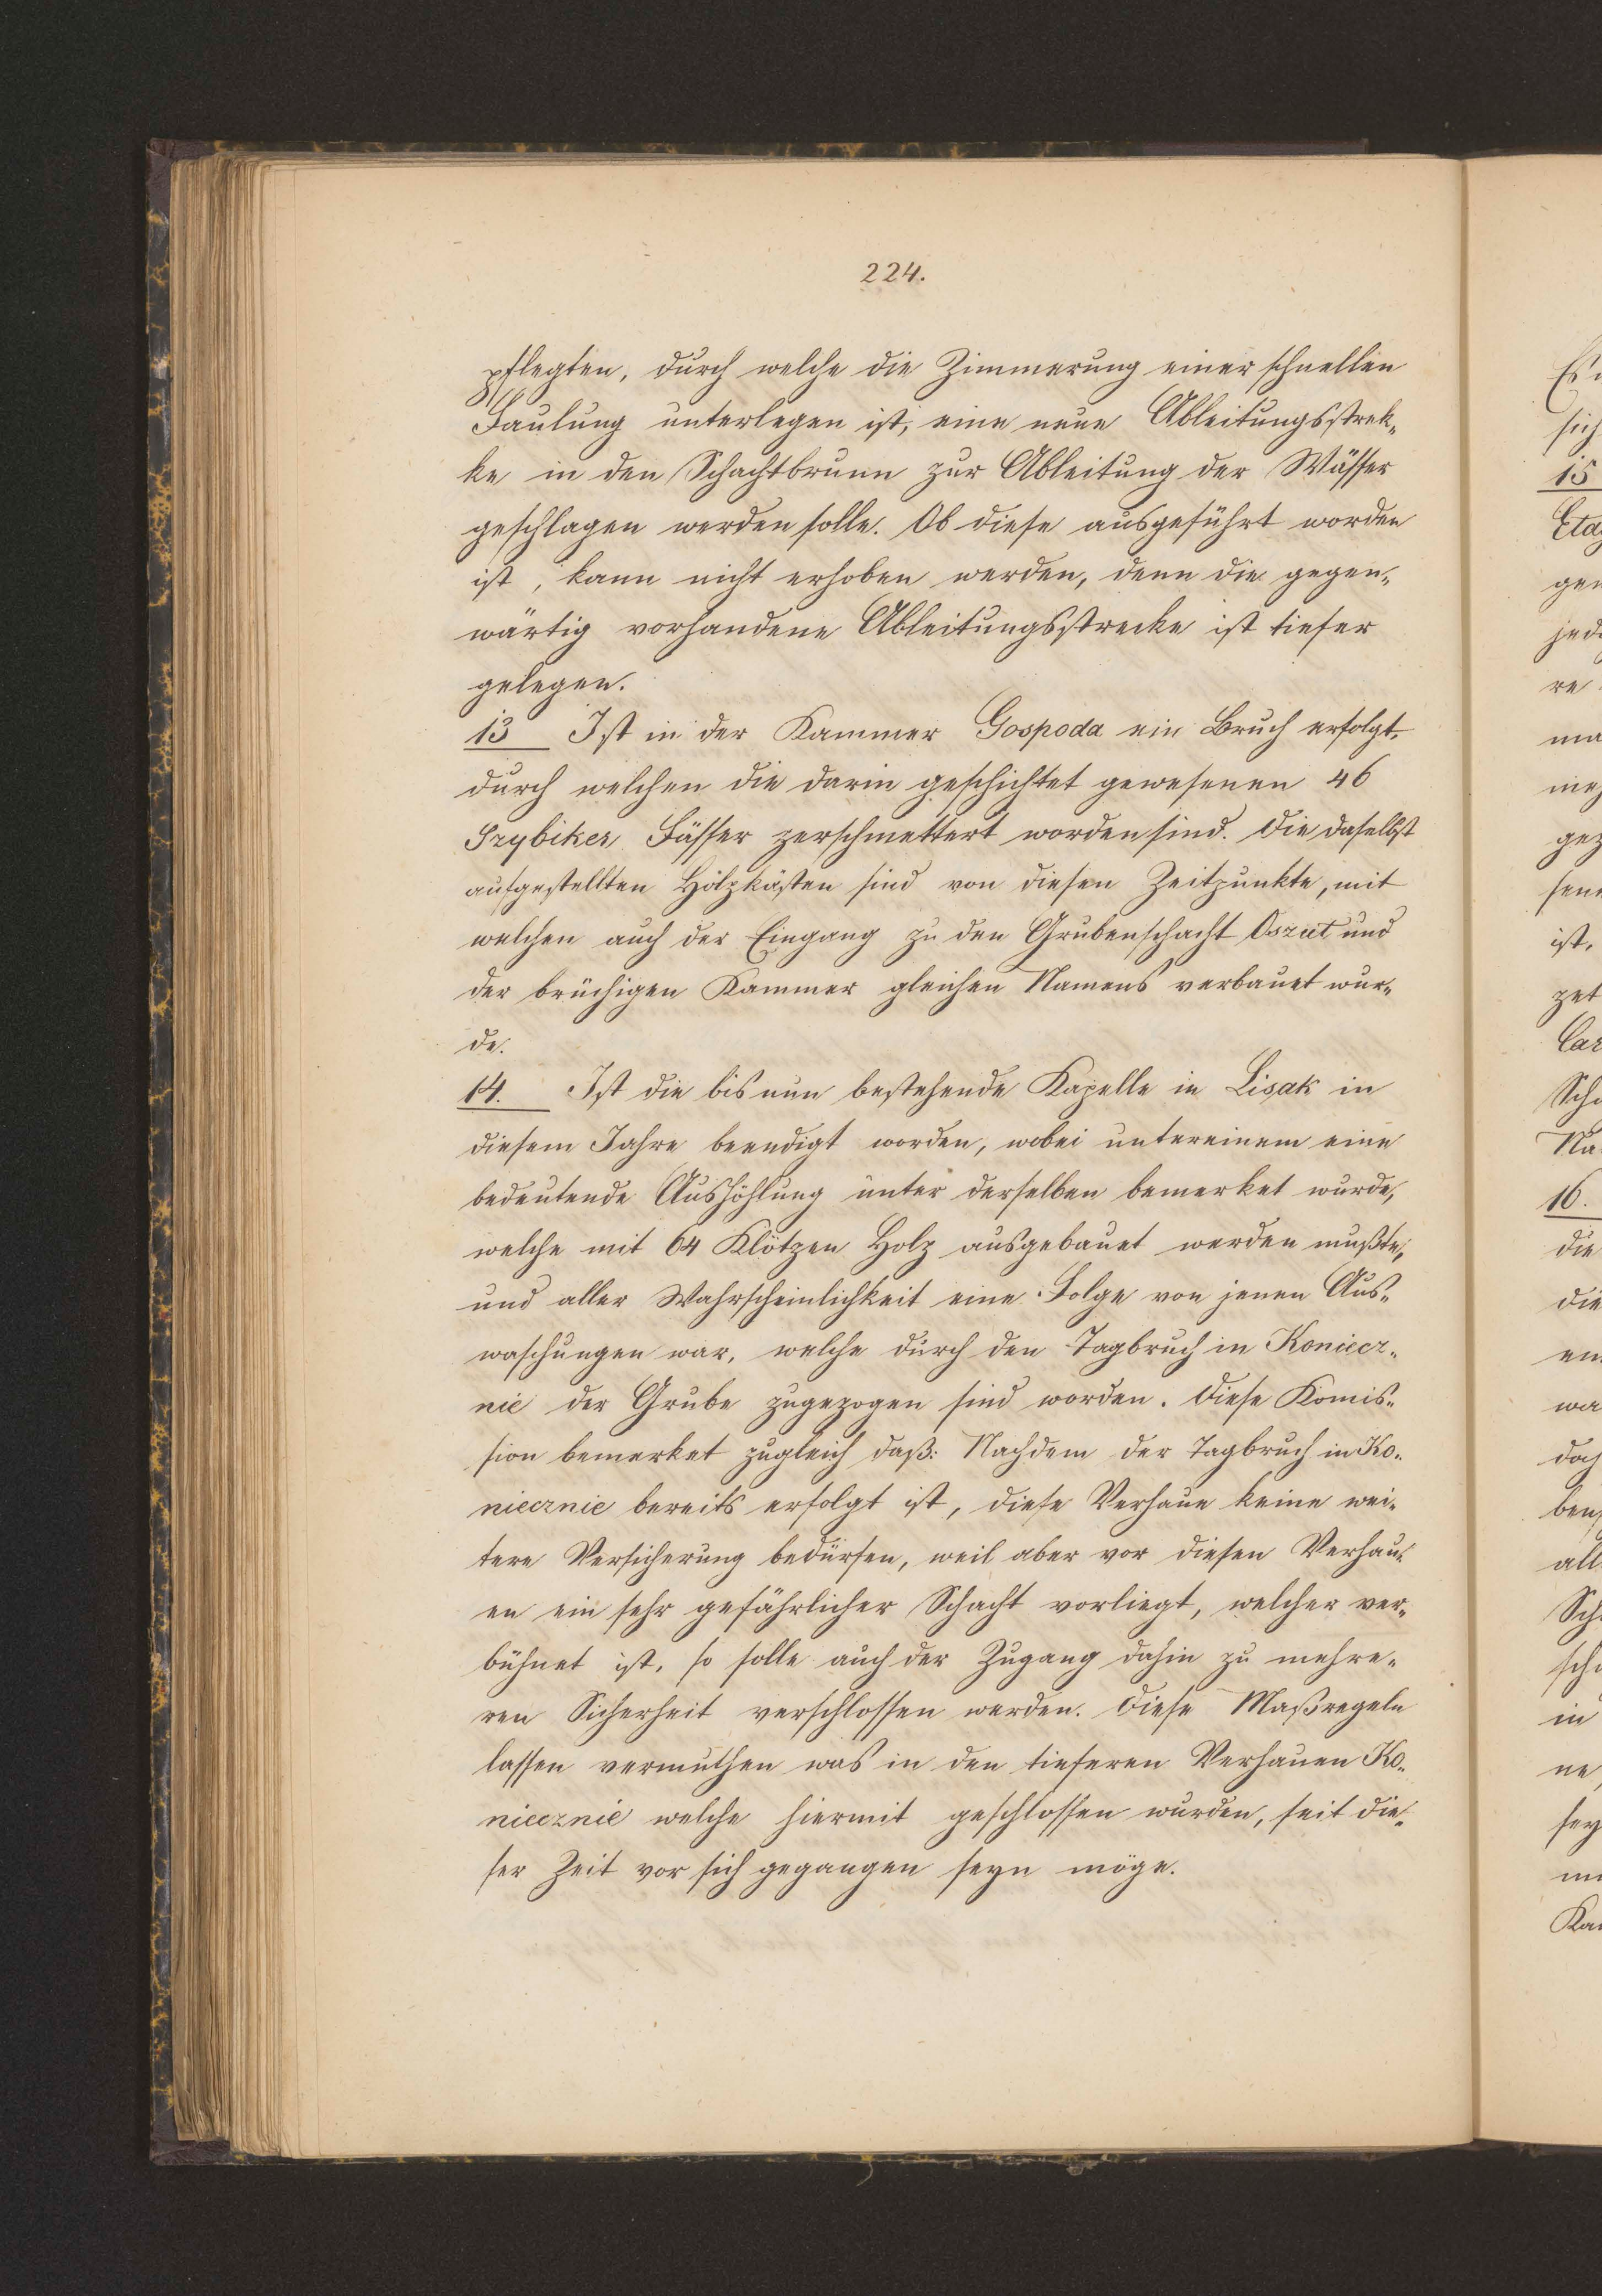 224.
pflegten, durch welche die Zimmerung einer schnellen
Faulung unterlegen ist, eine neue Ableitungsstrek-
ke in den Schachtbrunn zur Ableitung der Wässer
geschlagen werden solle. Ob diese ausgeführt worden
ist, kann nicht erhoben werden, denn die gegen-
wärtig vorhandene Ableitungsstrecke ist tiefer
gelegen.
13 Ist in der Kammer Gospoda ein Bruch erfolgt,
durch welchen die darin geschichtet gewesenen 46
Szybiker Fässer zerschmettert worden sind. Die daselbst
aufgestellten Holzkästen sind von diesen Zeitpunkte, mit
welchen auch der Eingang zu den Grubenschacht Oszut und
der brüchigen Kammer gleichen Namens verbauet wur-
de.
14. Ist die bis nun bestehende Kapelle in Lisak in
diesem Jahre beendigt worden, wobei untereinem eine
bedeutende Aushöhlung unter derselben bemerket wurde,
welche mit 64 Klötzen Holz ausgebauet werden mußte,
und aller Wahrscheinlichkeit eine Folge von jenen Aus-
waschungen war, welche durch den Tagbruch in Koniecz-
nie der Grube zugezogen sind worden. Diese Komis-
sion bemerket zugleich daß: Nachdem der Tagbruch in Ko-
niecznie bereits erfolgt ist, diese Verhaue keine wei-
tere Versicherung bedürfen, weil aber vor diesen Verhau-
en ein sehr gefährlicher Schacht vorliegt, welcher ver-
bühnet ist, so solle auch der Zugang dahin zu mehre-
ren Sicherheit verschlossen werden. Diese Maßregeln
lassen vermuthen was in den tieferen Verhauen Ko-
niecznie welche hiermit geschlossen wurden, seit die-
ser Zeit vor sich gegangen seyn möge.
sich
15
gen
jed
re
ma
gez
ist,
zet
Car
Sch
Na
16.
die
die
wa
ben
all
Sch
sch
in
ne,
sey
Ka